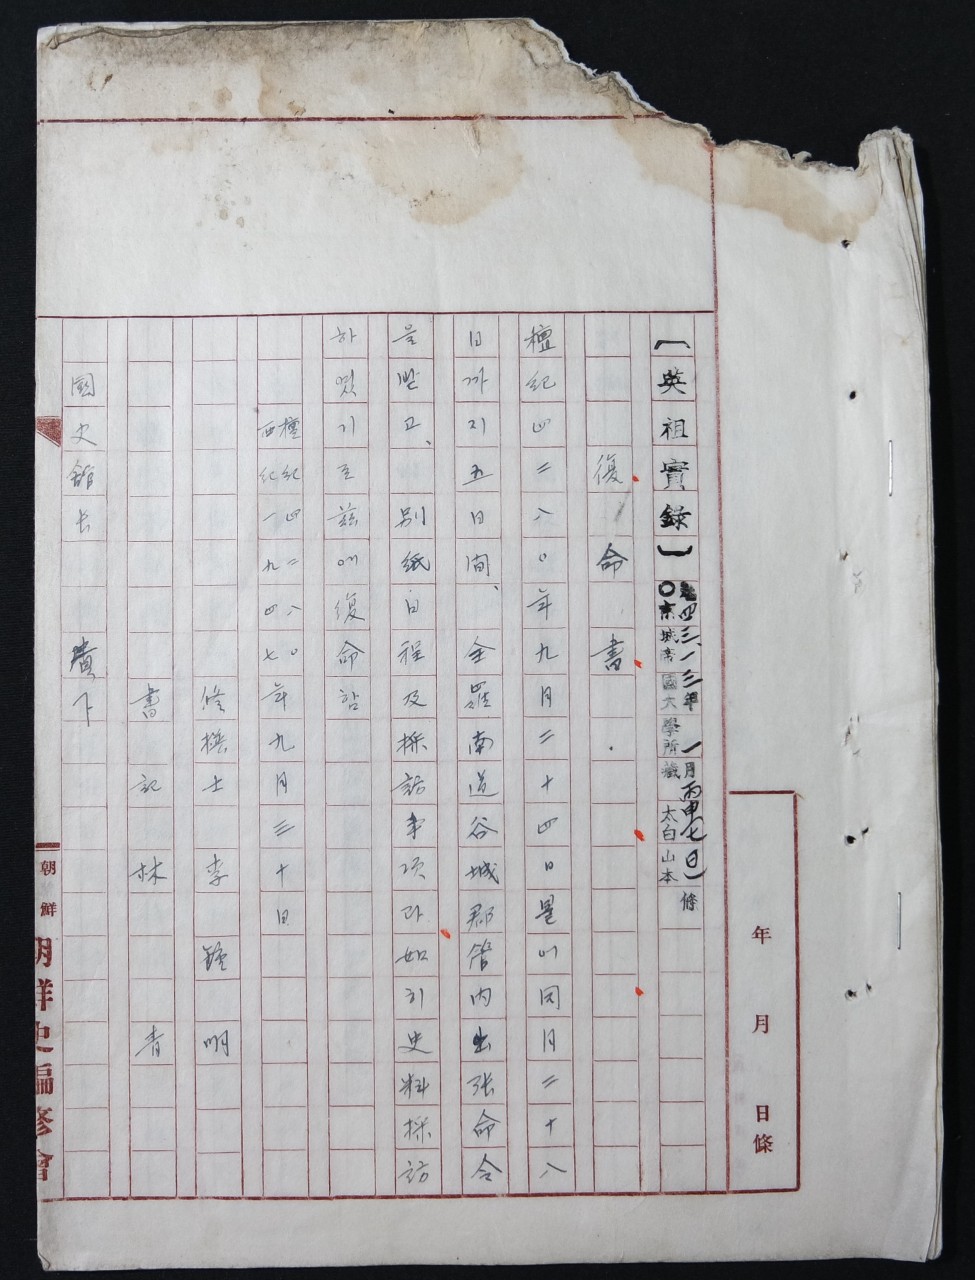 年 月 日條
【英祖實錄】
月丙申七日)條
○京城帝國大學所藏 太白山本
復命書
檀紀四二八○年九月二十四日 同月二十八
日까지五日間、全羅南道谷城郡管內出張命令
을받고、別紙日程及採訪事項과如히史料採訪
하였기로玆에復命함
檀紀四二八○
西紀一九四七年九月三十日
修撰士 李鍾明
書記 林青
國史館長 貴下
朝鮮
朝鮮史編修會